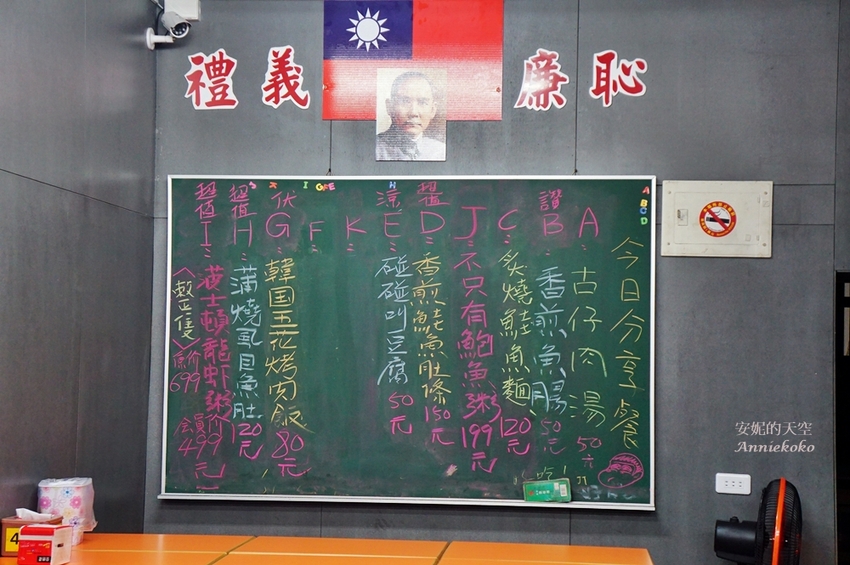 禮 義 廉 恥
今日分享餐
A: 古仔肉湯 50元
讚 B: 香煎魚腸 50元
C: 炙燒鮭魚麵 120元
J: 不只有鮑魚粥 199元
超值 D: 香煎鮭魚肚條 150元
涼 E: 碰碰叫豆腐 50元
K
F:
伏 G: 韓国五花烤肉飯 80元
超值 H: 蒲燒虱目魚肚 120元
超值 I: 波士頓龍蝦粥
<整隻>
原价 699
会員价 499元
A
B
C
D
安妮的天空
Anniekoko
4